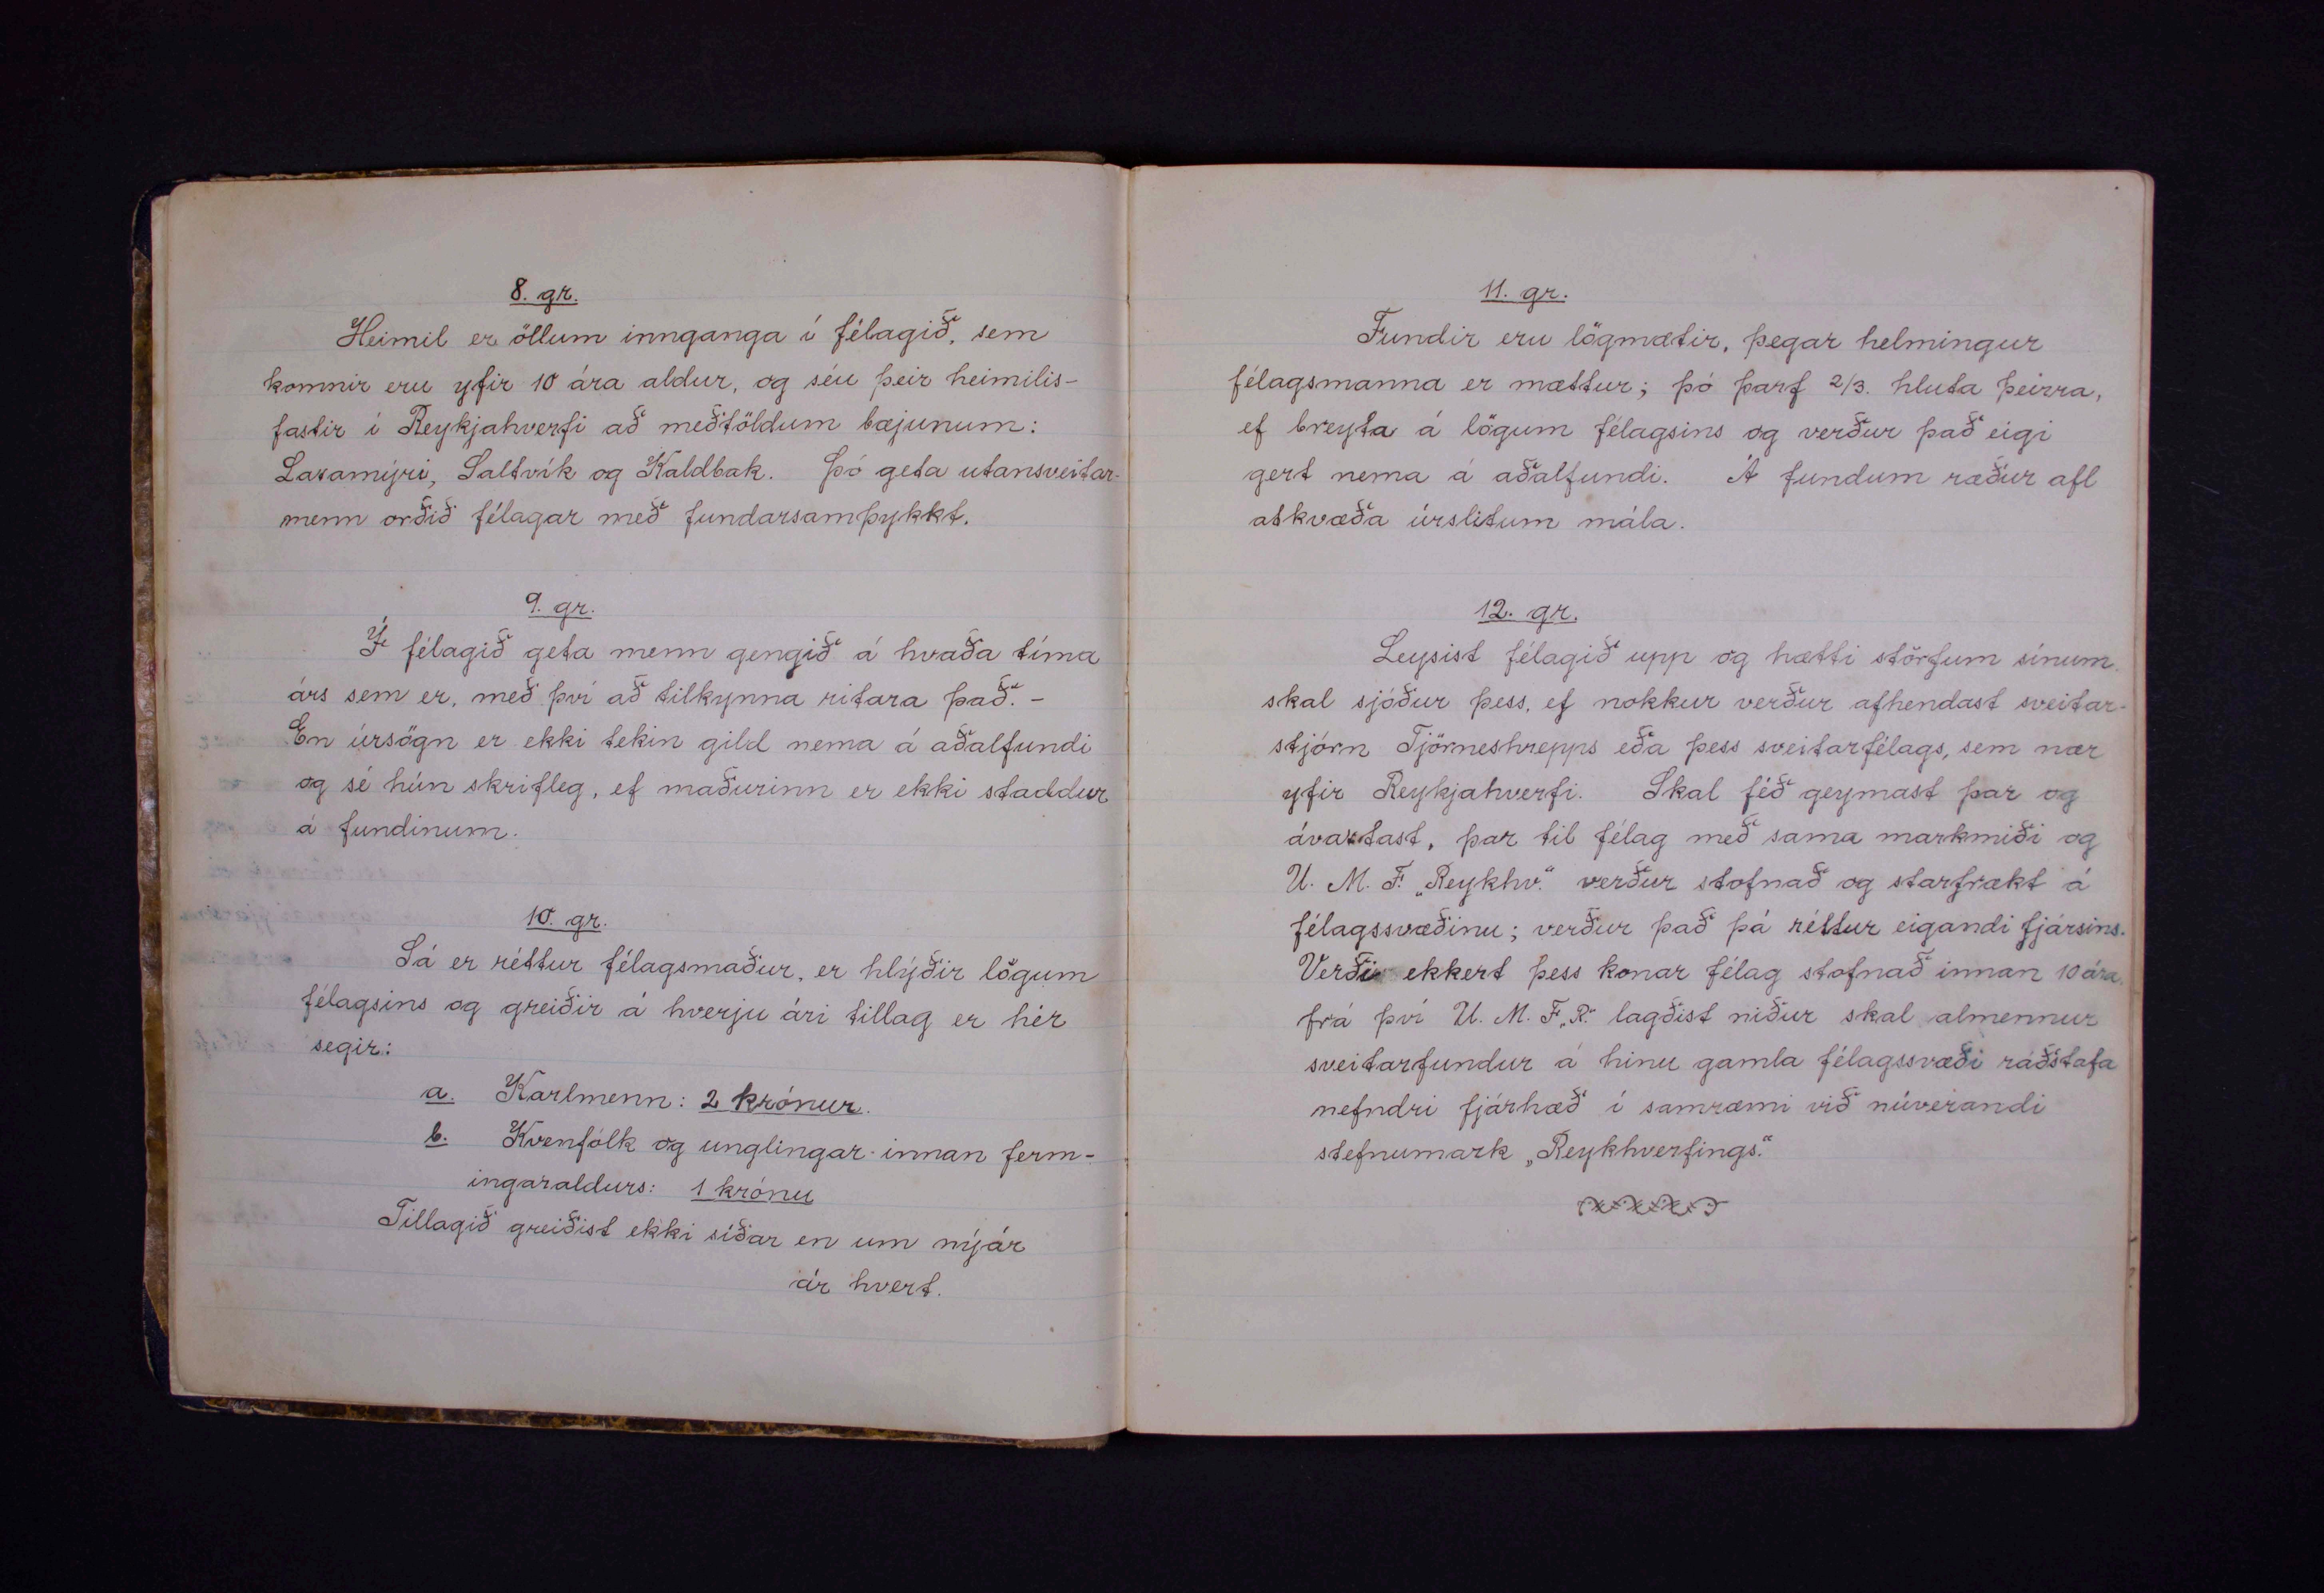 8. gr.
Heimil er öllum innganga í félagið, sem
komnir eru yfir 10 ára aldur, og séu þeir heimilis-
fastir í Reykjahverfi að meðtöldum bæjunum:
Laxamýri, Saltvík og Kaldbak. Þó geta utansveitar-
menn orðið félagar með fundarsamþykkt.
9. gr.
Í félagið geta menn gengið á hvaða tíma
árs sem er, með því að tilkynna ritara það. -
En úrsögn er ekki tekin gild nema á aðalfundi
og sé hún skrifleg, ef maðurinn er ekki staddur
á fundinum.
10. gr.
Sá er réttur félagsmaður, er hlýðir lögum
félagsins og greiðir á hverju ári tillag er hér
segir:
a. Karlmenn: 2 krónur.
b. Kvenfólk og unglingar innan ferm-
ingaraldurs: 1 krónu
Tillagið greiðist ekki síðar en um nýár
ár hvert.
11. gr.
Fundir eru lögmætir, þegar helmingur
félagsmanna er mættur; þó þarf 2/3. hluta þeirra,
ef breyta á lögum félagsins og verður það eigi
gert nema á aðalfundi. Á fundum ræður afl
atkvæða úrslitum mála.
12. gr.
Leysist félagið upp og hætti störfum sínum,
skal sjóður þess, ef nokkur verður afhendast sveitar-
stjórn Tjörneshrepps eða þess sveitarfélags, sem nær
yfir Reykjahverfi. Skal féð geymast þar og
ávaxtast, þar til félag með sama markmiði og
U. M. F. „Reykhv.“ verður stofnað og starfrækt á
félagssvæðinu; verður það þá réttur eigandi fjársins.
Verði ekkert þess konar félag stofnað innan 10 ára
frá því U. M. F. „R.“ lagðist niður skal almennur
sveitarfundur á hinu gamla félagssvæði ráðstafa
nefndri fjárhæð í samræmi við núverandi
stefnumark „Reykhverfings.“